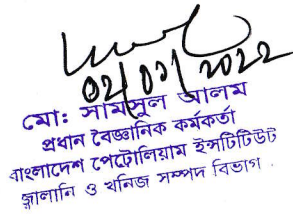 02/01/2022
মো: সামসুল আলম
প্রধান বৈজ্ঞানিক কর্মকর্তা
বাংলাদেশ পেট্রোলিয়াম ইন্সটিটিউট
জ্বালানি ও খনিজ সম্পদ বিভাগ .